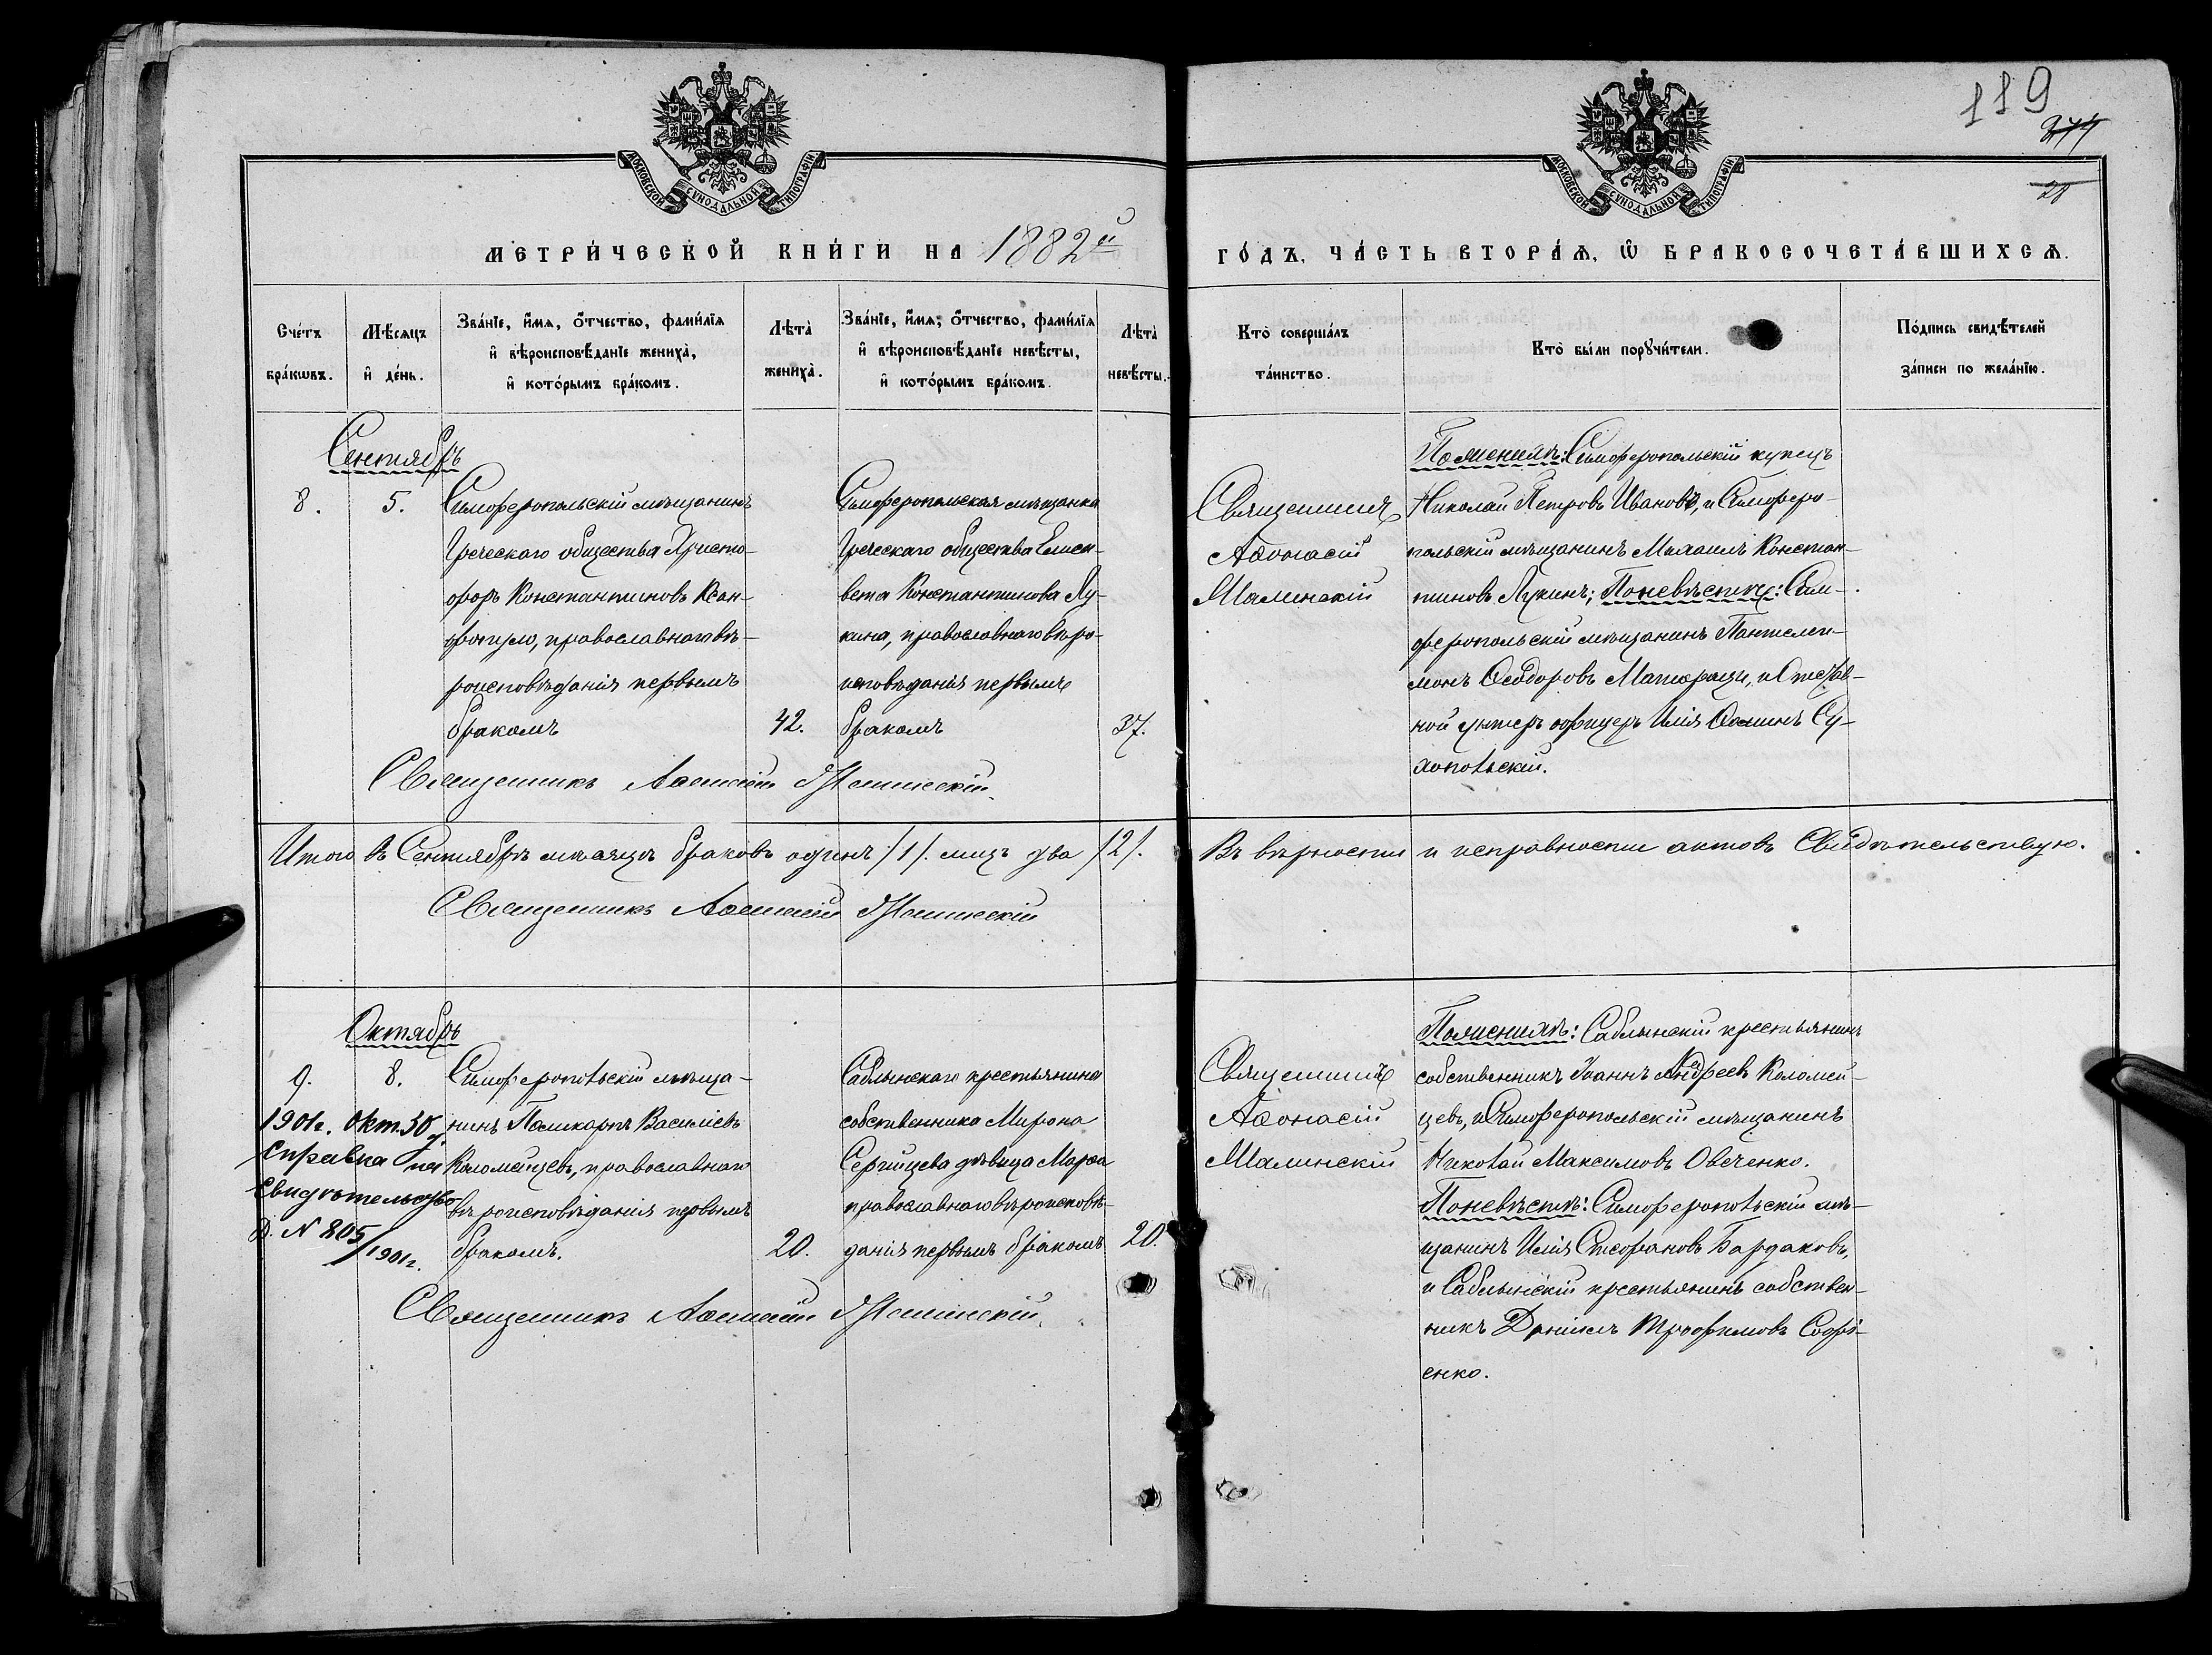 119
МОСКОВСКОЙ СУНОДАЛЬНОЙ ТИПОГРАФІИ
МОСКОВСКОЙ СУНОДАЛЬНОЙ ТИПОГРАФІИ
МЕТРИ́ЧЕСКОЙ КНИ́ГИ НА 1882й
ГО́ДЪ, ЧА́СТЬ ВТОРА́Ѧ, Ѡ҆ БРАКОСОЧЕТА́ВШИХСѦ.
Сче́тъ
бра́кѡвъ.
Мѣ́сѧцъ
и҆ де́нь.
Зва́нїе, и҆́мѧ, ѻ҆́тчество, фами́лїѧ
и҆ вѣроисповѣ́данїе жениха̀,
и҆ кото́рымъ бра́комъ.
Лѣта̀
жениха̀.
Зва́нїе, и҆́мѧ, ѻ҆́тчество, фами́лїѧ
и҆ вѣроисповѣ́данїе невѣ́сты,
и҆ кото́рымъ бра́комъ.
Лѣта̀
невѣ́сты.
Кто̀ соверша́лъ
та́инство.
Кто̀ бы́ли порꙋчи́тели.
По́дпись свидѣ́телей
за́писи по жела́нїю.
Сентябрь
8.
5.
Симферопольскій мѣщанинъ
Греческаго общества Христо-
форъ Константиновъ Ксан-
фопуло, православнаго вѣ-
роисповѣданія первымъ
бракомъ
42.
Симферопольская мѣщанка
Греческаго общества Елиса-
вета Константинова Лу-
кина, православнаго вѣро-
исповѣданія первымъ
бракомъ
37.
Священникъ
Аѳонасій
Малинскій
По женихѣ: Симферопольскій купецъ
Николай Петровъ Ивановъ, и Симферо-
польскій мѣщанинъ Михаилъ Констан-
тиновъ Лукинъ; По невѣстѣ: Сим-
феропольскій мѣщанинъ Пантелей-
монъ Ѳеодоровъ и Отстав-
ной унтеръ офицеръ Илія Ѳоминъ Су-
хопольскій.
Священникъ Аѳонасій Малинскій
Итого въ Сентябрѣ мѣсяцѣ браковъ одинъ /1/. лицъ два /2/.
Въ вѣрности и исправности актовъ Свидѣтельствую.
Священникъ Аѳонасій Малинскій
Октябрь
9.
8.
1901г. Окт. 30 д.
Справка на
Свидѣтельство
Д. N 805/1901г.
Симферопольскій мѣща-
нинъ Поликарпъ Василіевъ
Коломейцевъ, православнаго
вѣроисповѣданія первымъ
бракомъ.
20.
Саблынскаго крестьянина
собственника Мирона
Сергійцева дѣвица Марѳа
православнаго вѣроисповѣ-
данія первымъ бракомъ
20.
Священникъ
Аѳонасій
Малинскій
По женихѣ: Саблынскій крестьянинъ
собственникъ Іоаннъ Андреевъ Коломей-
цевъ, и Симферопольскій мѣщанинъ
Николай Максимовъ Овченко.
По невѣстѣ: Симферопольскій мѣ-
щанинъ Илія Стефановъ Бардаковъ,
и Саблынскій крестьянинъ собствен-
никъ Даніилъ Трофимовъ Софі-
енко.
Священникъ Аѳонасій Малинскій